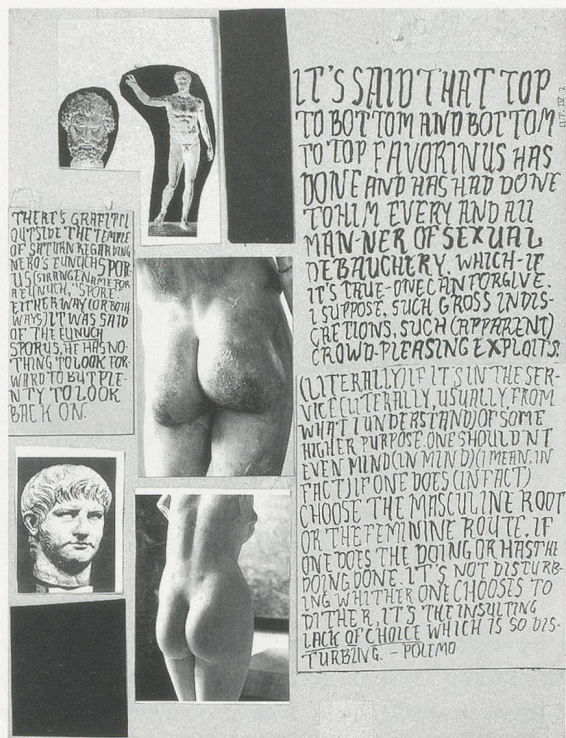 THERE'S GRAFITTI
OUTSIDE THE TEMPLE
OF SATURN REGARDING
NERO'S EUNUCH SPOR-
US (STRANGE NAME FOR
A EUNUCH, "SPORE."
EITHER WAY (OR BOTH
WAYS) IT WAS SAID
OF THE EUNUCH
SPORUS, HE HAS NO-
THING TO LOOK FOR-
WARD TO BUT PLE-
NTY TO LOOK
BACK ON.
IT'S SAID THAT TOP
TO BOTTOM AND BOTTOM
TO TOP FAVORINUS HAS
DONE AND HAS HAD DONE
TO HIM EVERY AND ALL
MAN-NER OF SEXUAL
DEBAUCHERY. WHICH-IF
IT'S TRUE-ONE CAN FORGIVE.
I SUPPOSE. SUCH GROSS INDIS-
CRETIONS, SUCH (APPARENT)
CROWD-PLEASING EXPLOITS.
(LITERALLY) IF IT'S IN THE SER-
VICE (LITERALLY, USUALLY, FROM
WHAT I UNDERSTAND) OF SOME
HIGHER PURPOSE. ONE SHOULDN'T
EVEN MIND (IN MIND) (I MEAN. IN
FACT) IF ONE DOES (IN FACT)
CHOOSE THE MASCULINE ROOT
OR THE FEMININE ROUTE. IF
ONE DOES THE DOING OR HAS THE
DOING DONE. IT'S NOT DISTURB-
ING WHITHER ONE CHOOSES TO
DITHER, IT'S THE INSULTING
LACK OF CHOICE WHICH IS SO DIS-
TURBING. - POLEMO